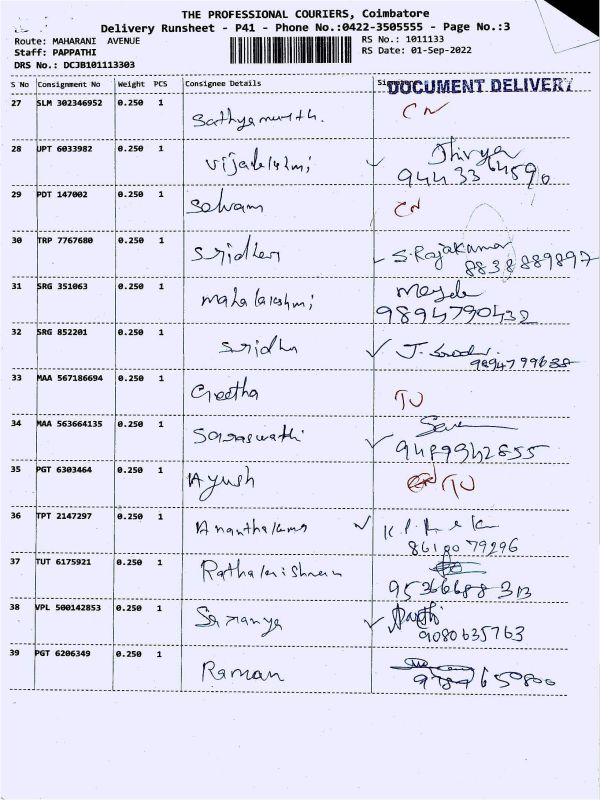 THE PROFESSIONAL COURIERS, Coimbatore
Delivery Runsheet - P41 - Phone No.:0422-3505555 - Page No.:3
Route: MAHARANI AVENUE RS No.: 1011133
Staff: PAPPATHI RS Date: 01-Sep-2022
DRS No.: DCJB101113303
S No Consignment No Weight PCS Consignee Details DOCUMENT DELIVERY
27 SLM 302346952 0.250 1 CN
28 UPT 6033982 0.250 1 Vijadelahmi Thivya
9443364590
29 PDT 147002 0.250 1 Selvam CN
30 TRP 7767680 0.250 1 Sridher S. Rajakumar
8838889897
31 SRG 351063 0.250 1 mahalakshmi
9894790432
32 SRG 852201 0.250 1 Sridhu J.
9894799688
33 MAA 567186694 0.250 1 Geetha TU
34 MAA 563664135 0.250 1 Saraswathi
9489342855
35 PGT 6303464 0.250 1 Ayush TU
36 TPT 2147297 0.250 1
8618079296
37 TUT 6175921 0.250 1
95366688313
38 VPL 500142853 0.250 1 Saranya
9080635763
39 PGT 6206349 0.250 1 Raman
9789650800